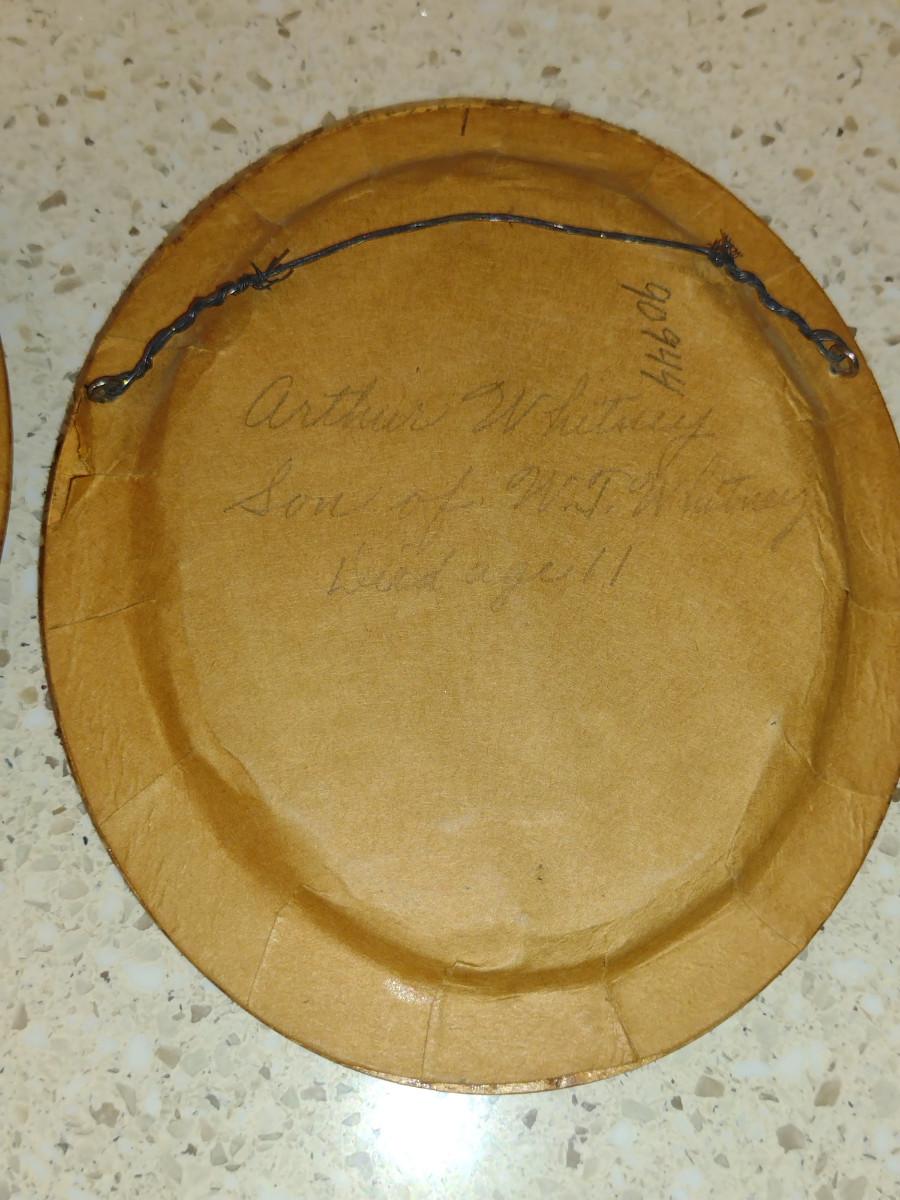 90944
Arthur Whitney
Son of W.T. Whitney
Died age 11